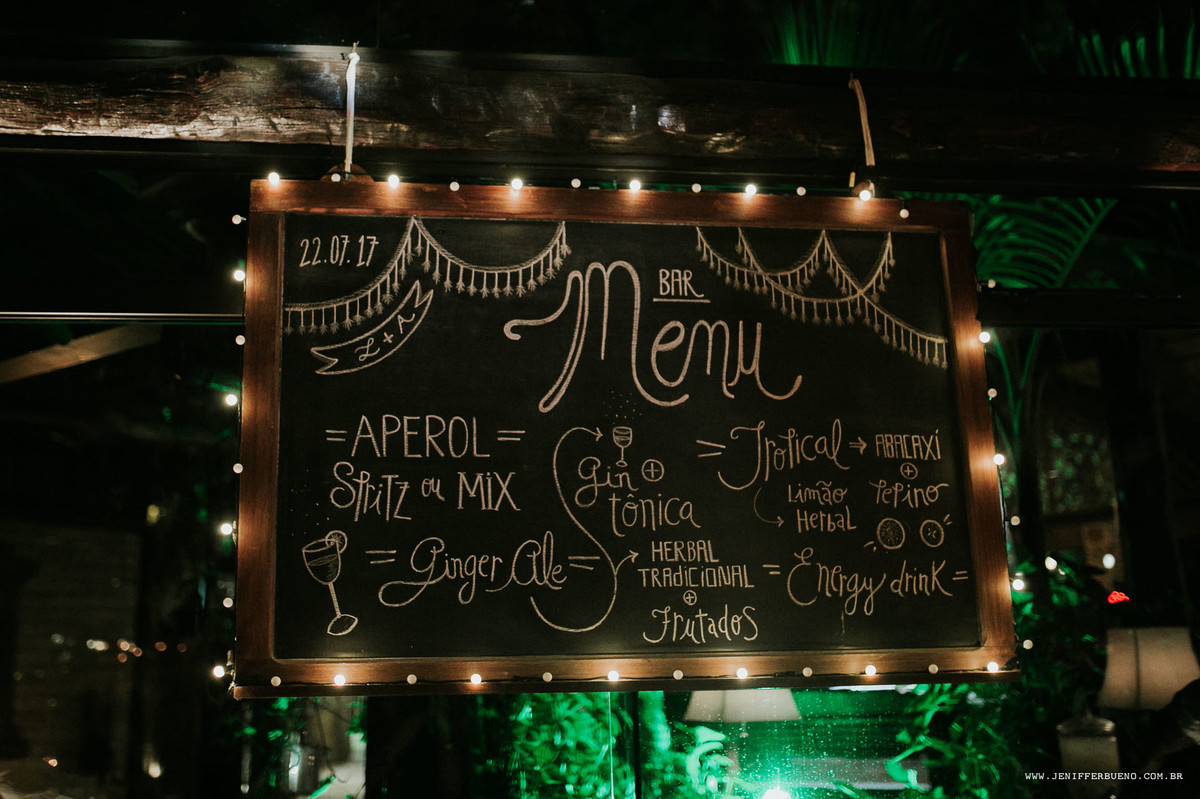 22.07.17
L + A
BAR
Menu
=APEROL=
SPRITZ ou MIX
=Ginger Ale=
Gin +
tônica
HERBAL
TRADICIONAL
+
Frutados
=Tropical → ABACAXÍ
+
Limão Pepino
Herbal
=Energy drink=
WWW.JENIFFERBUENO.COM.BR